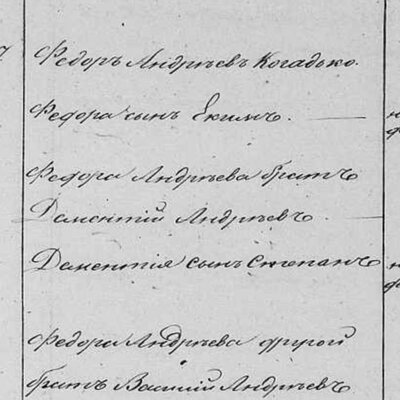 Федоръ Андрѣевъ Когадько.
Федора сынъ Екимъ.
Федора Андрѣева братъ
Дементій Андрѣевъ
Дементія сынъ Степанъ
Федора Андрѣева другой
братъ Василій Андрѣевъ